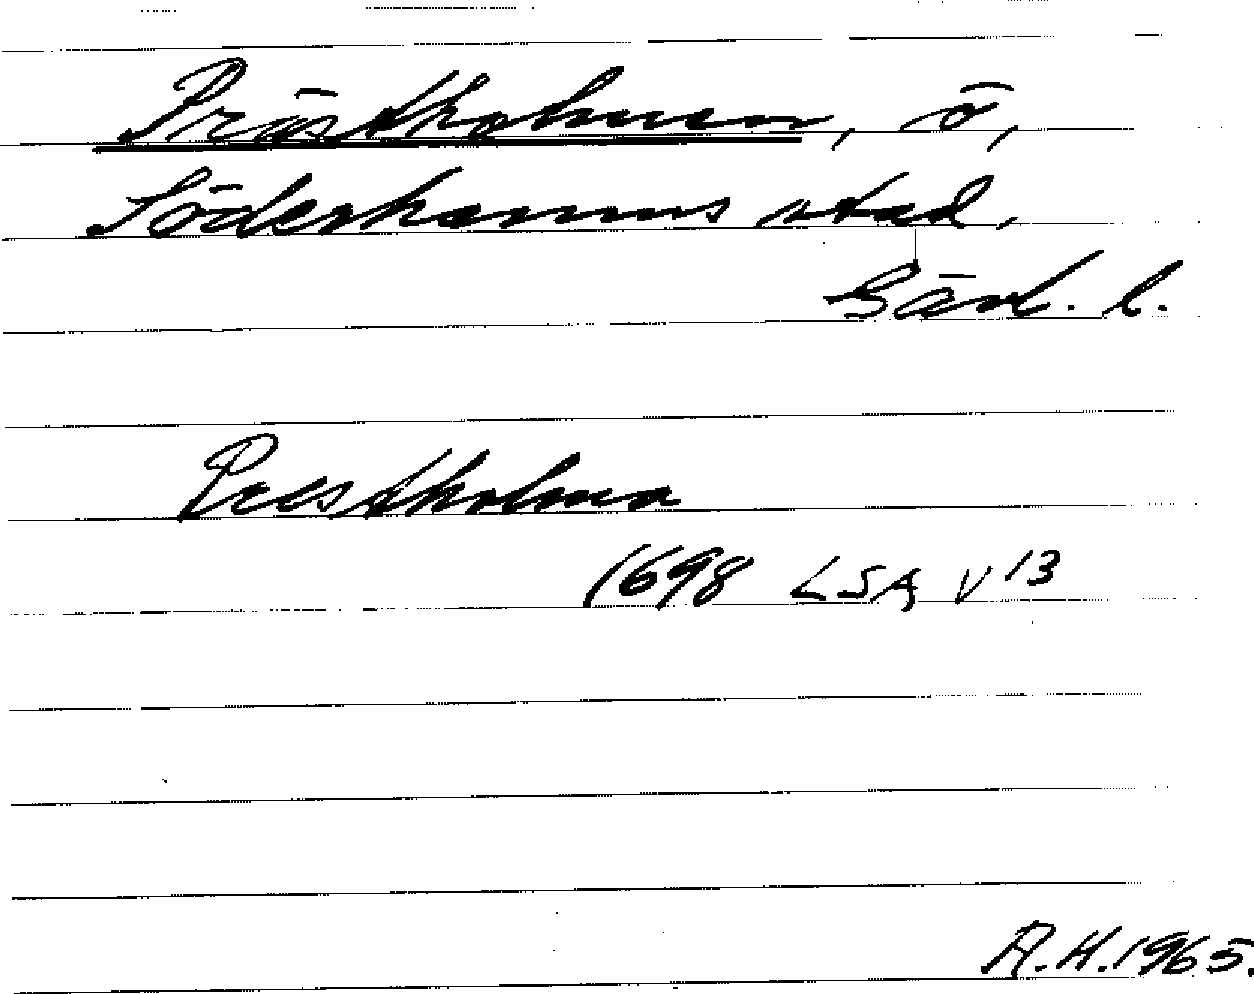 Prästholmen, ö,
Söderhamns stad,
Gävl. l.
Prestholmen
1698 LSA V 13
A.H. 1965.